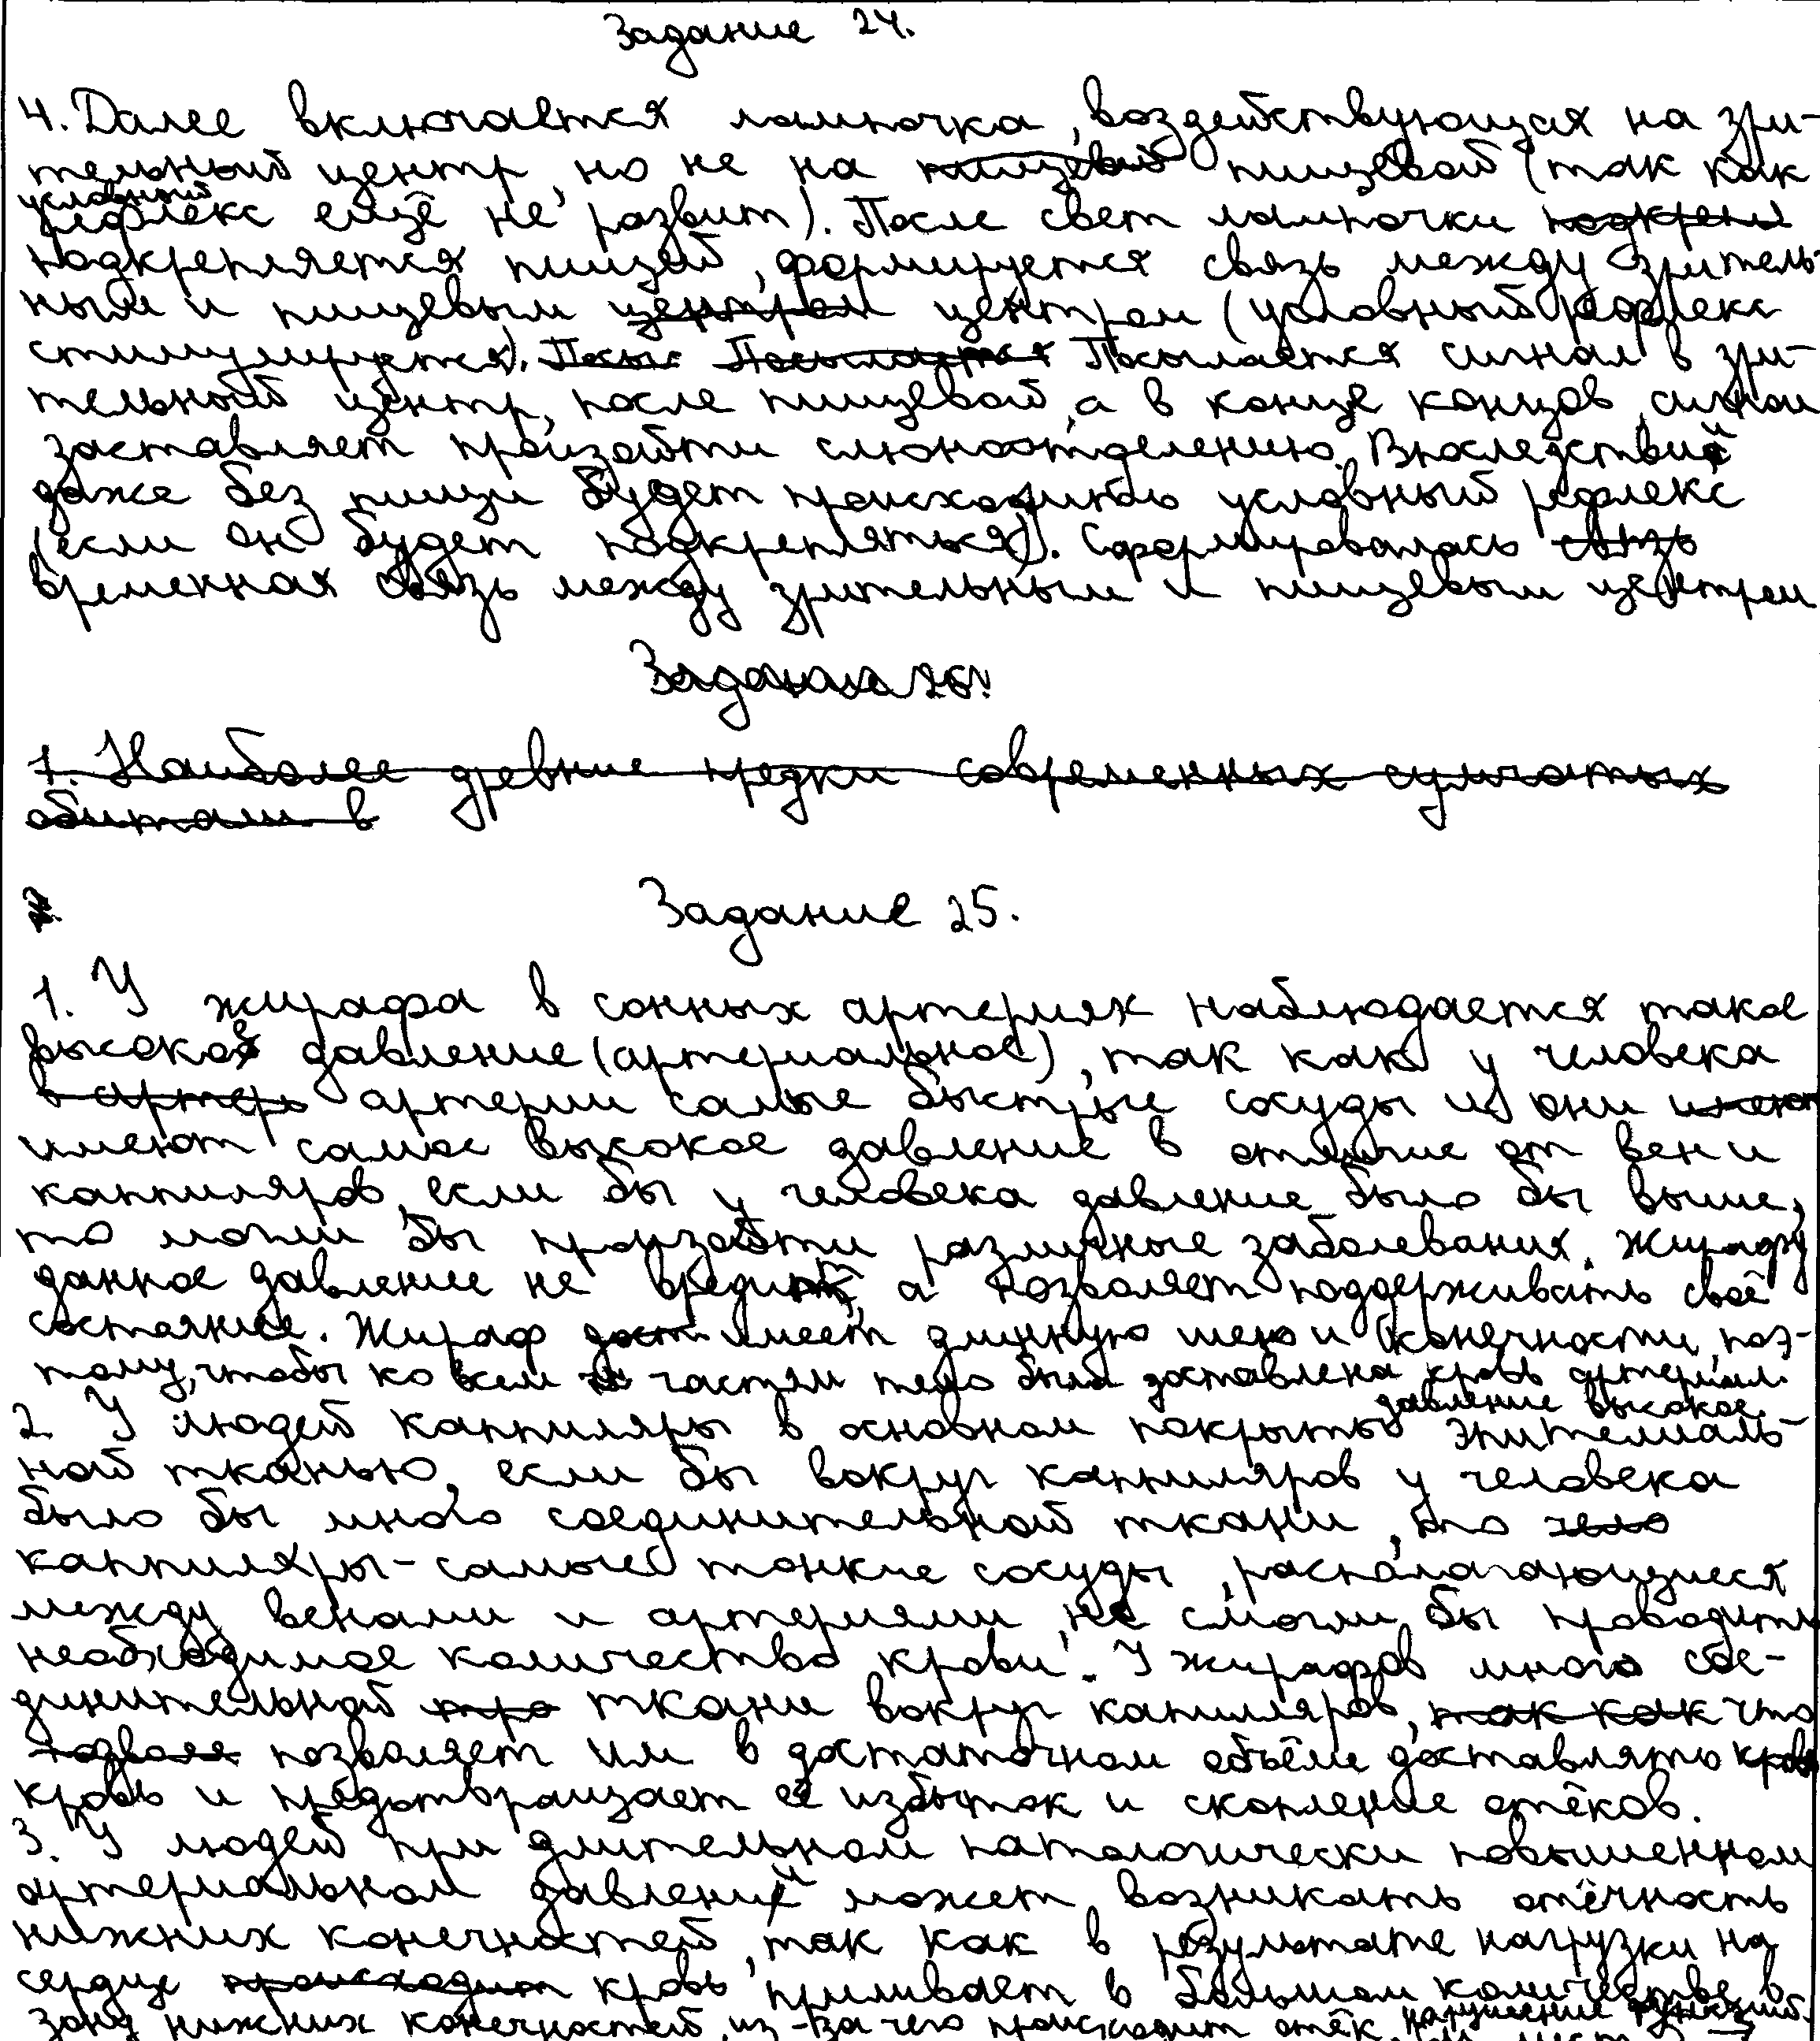 Задание 24.
4. Далее включается лампочка, воздействующая на зри-
тельный центр, но не на пищевой пищевой (так как
условный
рефлекс ещё не развит). После свет лампочки подкрепл
подкрепляется пищей, формируется связь между зритель-
ным и пищевым центром центром (условный рефлекс
стимулируется). Посы Посылается Посылается сигнал в зри-
тельный центр, после пищевой, а в конце концов, сигнал
заставляет произойти слюноотделению. Впоследствий
даже без пищи будет происходить условный рефлекс
(если он будет подкрепляться). Сформировалась связь
временная связь между зрительным и пищевым центром
Задание 26.
1. Наиболее древние предки современных сумчатых
обитали в
Задание 25.
1. У жирафа в сонных артериях наблюдается такое
высокое давление (артериальное), так как у человека
в артерь артерии самые быстрые сосуды и они имеют
имеют самое высокое давление в отличие от вен и
капиляров, если бы у человека давление было бы выше,
то могли бы произойти различные заболевания. Жирафу
данное давление не вредит, а позволяет поддерживать своё
состояние. Жираф дост имеет длинную шею и конечности, поэ-
тому, чтобы ко всем частям тела была доставлена кровь артериал.
давление высокое.
2. У людей каппиляры в основном покрыты эпителиаль-
ной тканью, если бы вокруг каппиляров у человека
было бы много соединительной ткани, то чело
каппиляры - самые тонкие сосуды, распалагающиеся
между венами и артериями, не смогли бы проводить
необходимое количество крови. У жирафов много сое-
динительной тка ткани вокруг капиляров, так как что
позволя позволяет им в достаточном объёме доставлять кровь
кровь и предотвращает её избыток и скопление отёков.
3. У людей при длительном патологически повышенном
артериальном давлений может возникать отёчность
нижних конечностей, так как в результате нагрузки на
сердце происходит кровь приливает в большом количестве в
зону нижних конечностей, из-за чего происходит отёк, нарушение функций.